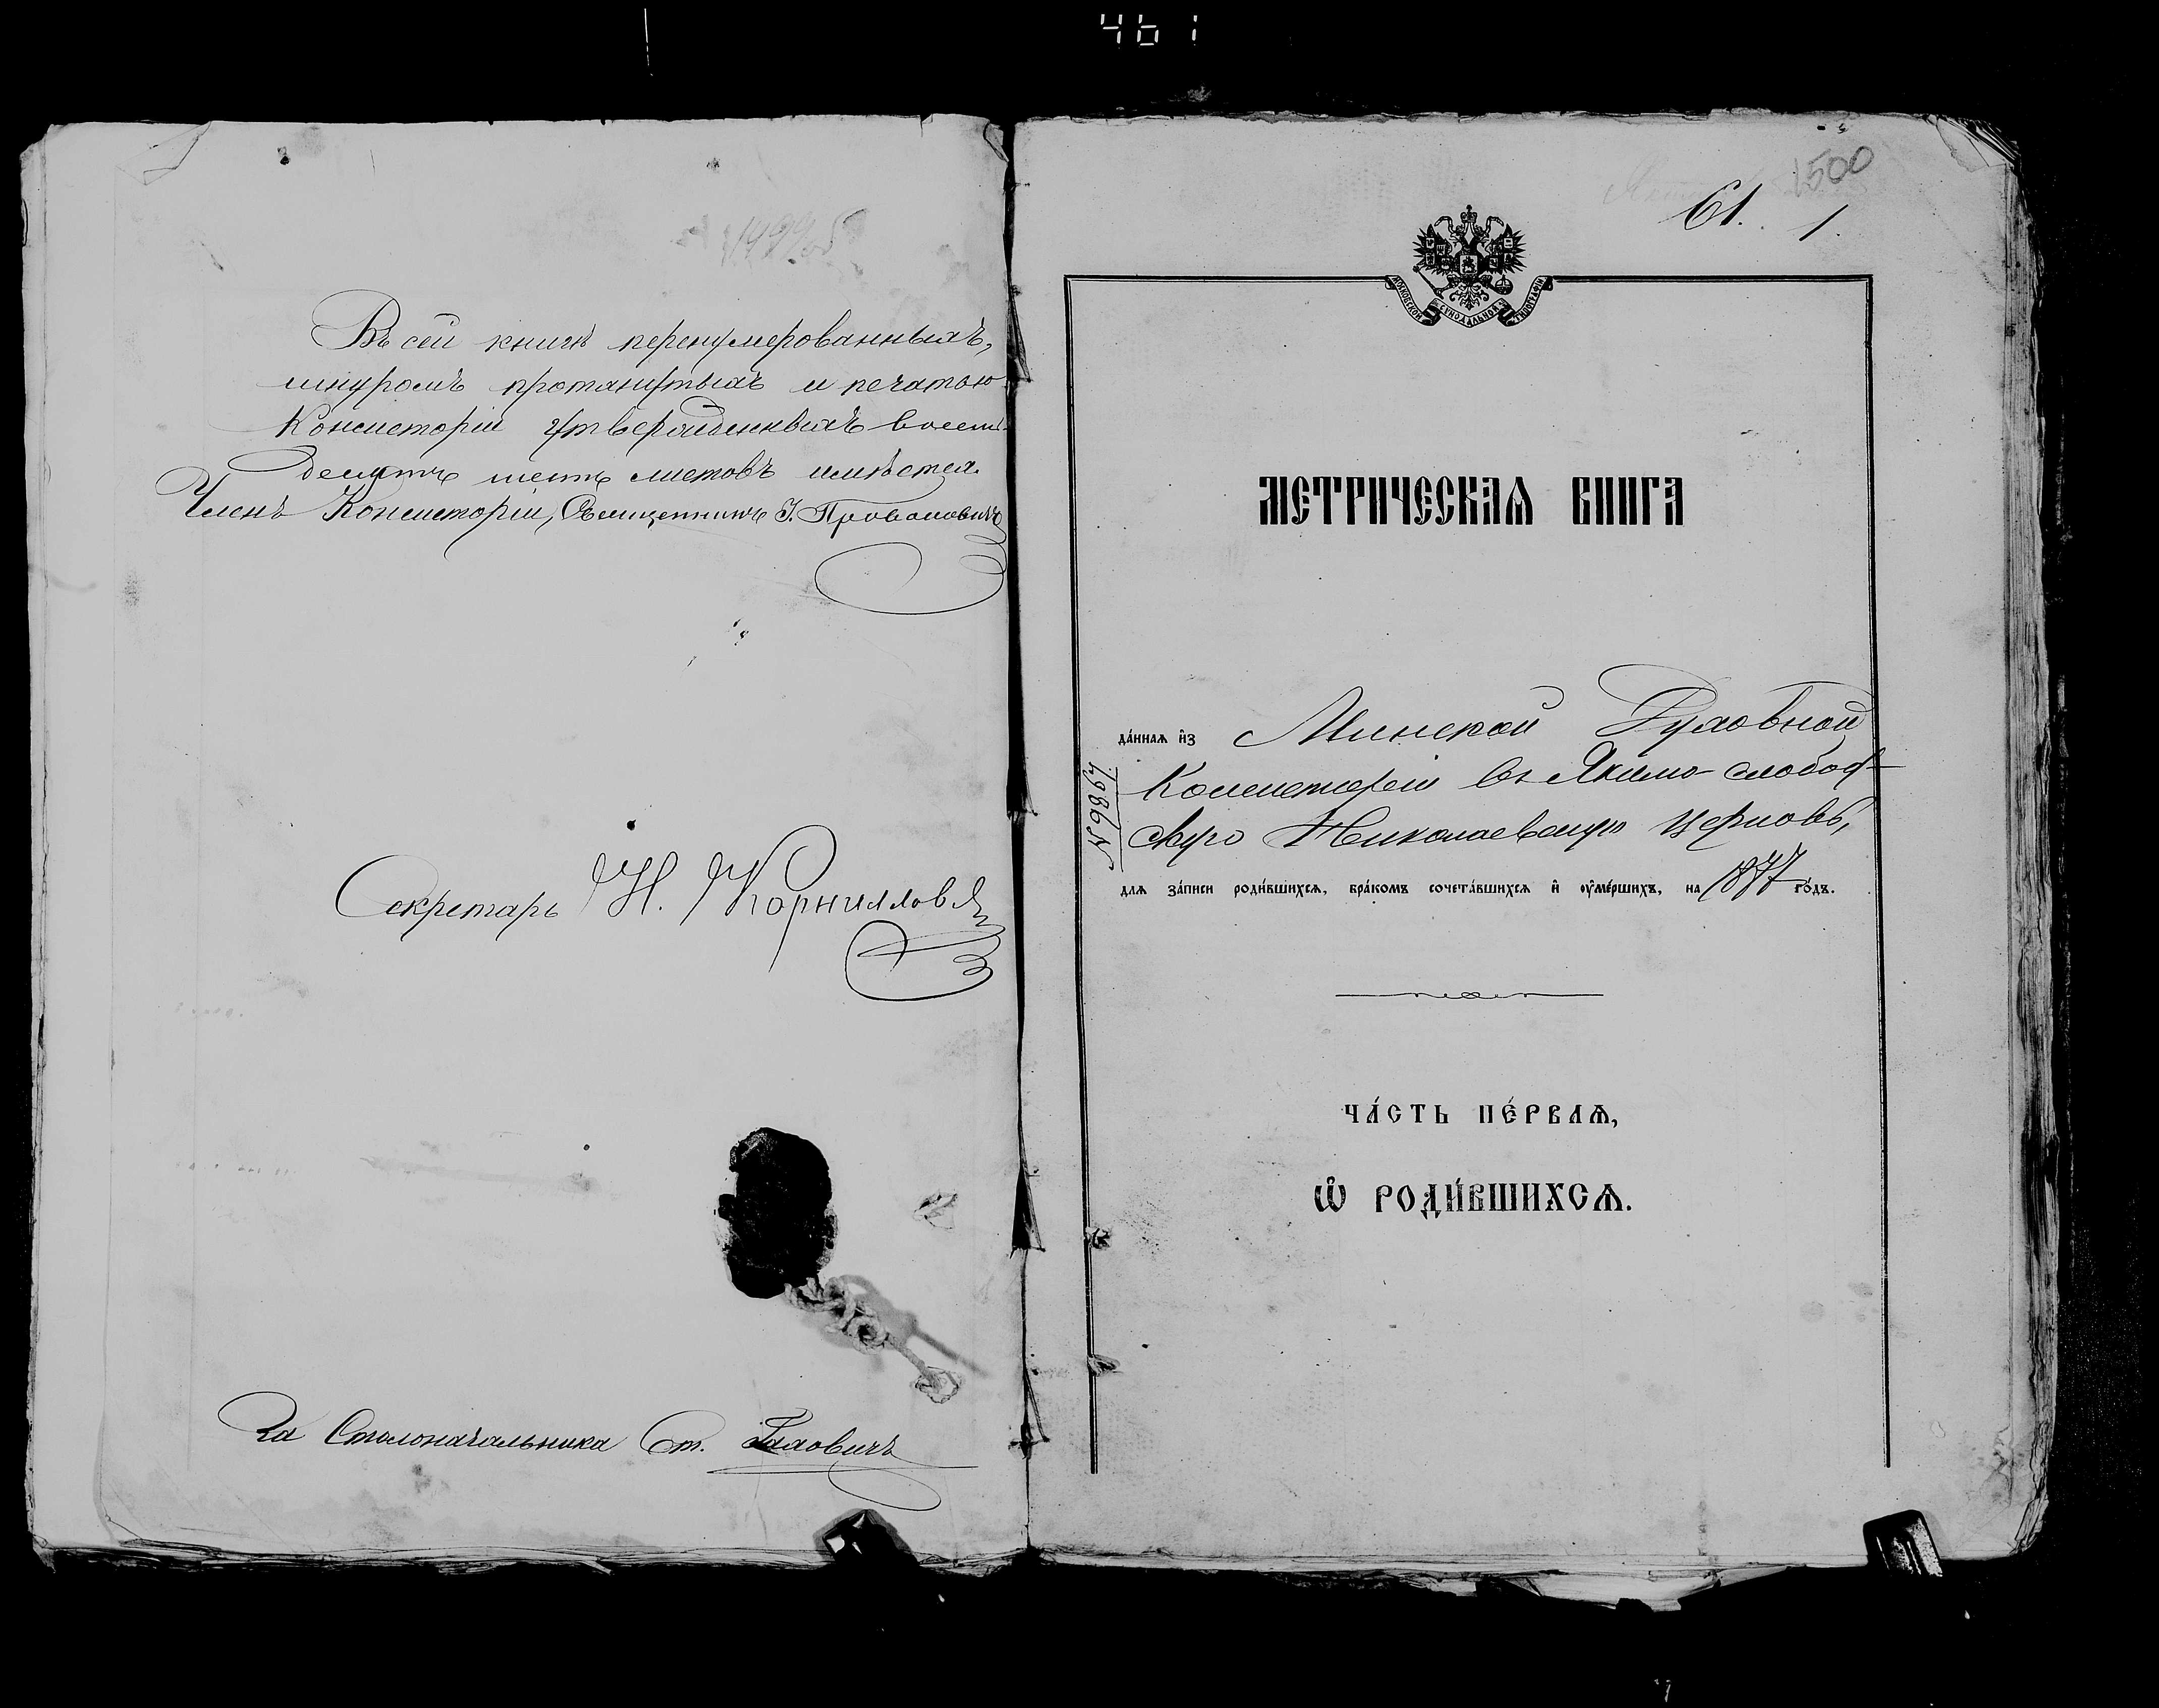 461
1499об
Въ сей книгѣ перенумерованныхъ,
шнуромъ протянутыхъ и печатью
Консисторіи утвержденныхъ восемь-
десятъ шесть листовъ имѣется.
Членъ Консисторіи, Священникъ І. Проволовичъ
Секретарь Н. Корниловъ
За Столоначальника Ст.
1500
61. 1.
МОСКОВСКОЙ СѴНОДАЛЬНОЙ ТИПОГРАФІИ
МЕТРИЧЕСКАѦ КНИГА
да́ннаѧ и҆з Минской Духовной
Консисторіи въ Якимо-слобод-
скую Николаевскую церковь,
№ 9864
для за́писи роди́вшихсѧ, бра́комъ сочета́вшихсѧ и҆ ᲂу҆ме́ршихъ, на 1877 го́дъ.
ЧА́СТЬ ПЕ́РВАѦ,
Ѡ҆ РОДИ́ВШИХСѦ.